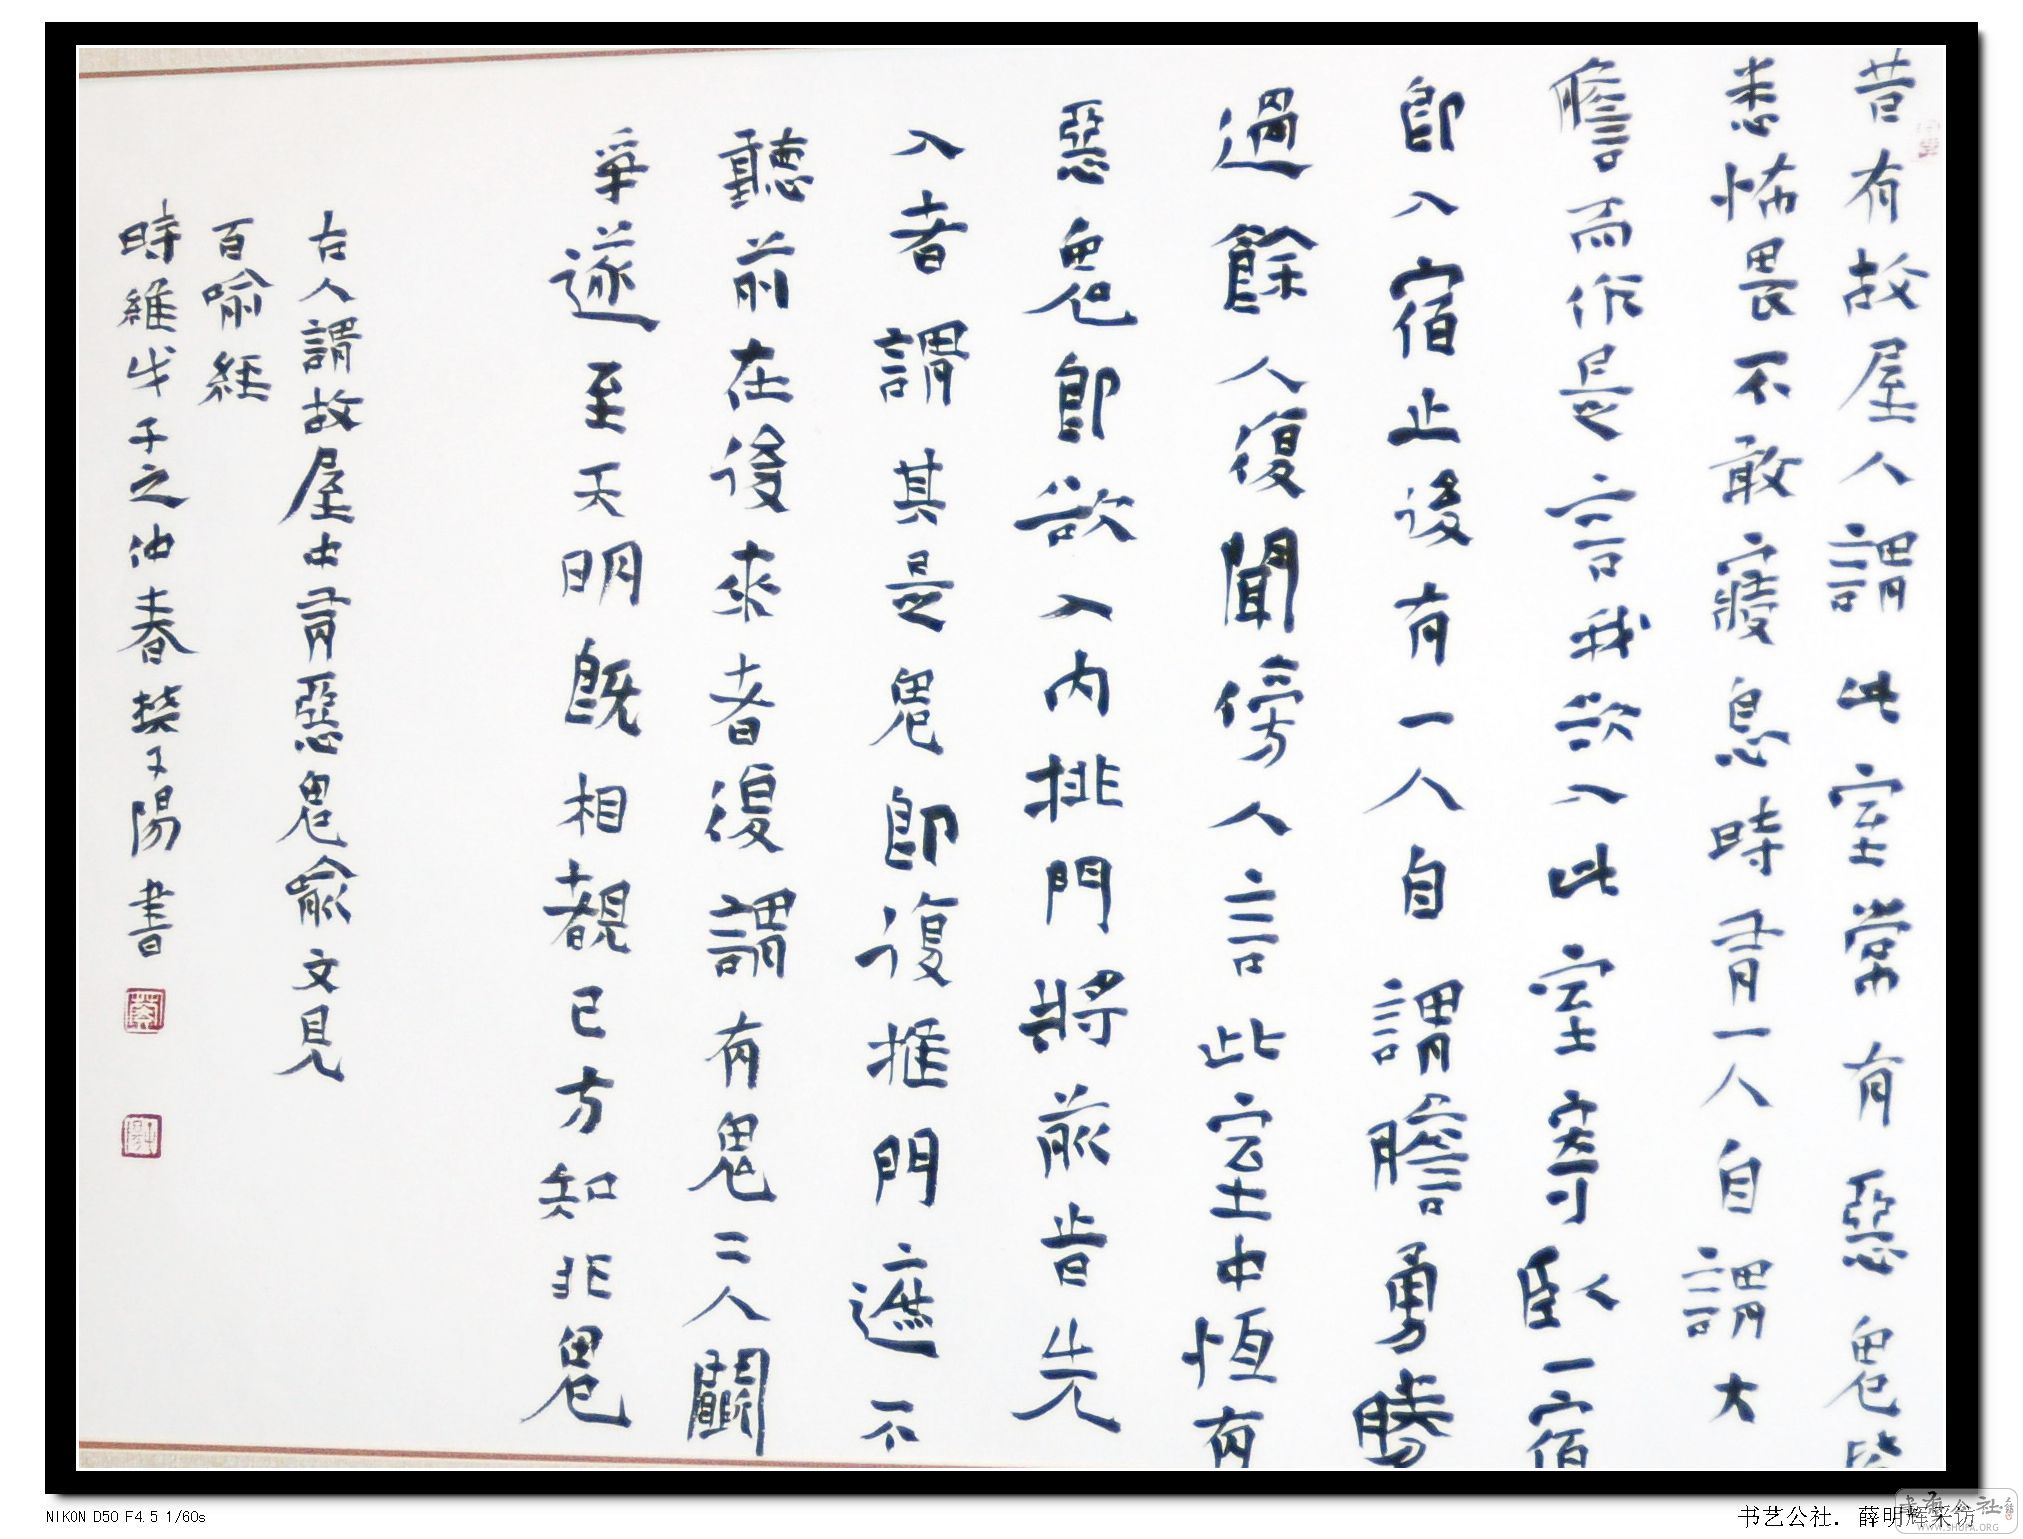 昔有故屋人謂此室常有惡鬼皆
悉怖畏不敢寢息時有一人自謂大
膽而作是言我欲入此室寄臥一宿
即入宿止後有一人自謂膽勇勝
過餘人復聞傍人言此室中恆有
惡鬼即欲入內排門將前昔先
入者謂其是鬼即復推門遮不
聽前在後來者復謂有鬼二人鬭
爭遂至天明既相覩已方知非鬼
古人謂故屋中有惡鬼喻文見
百喻經
時維戊子之仲春樊子陽書
NIKON D50 F4.5 1/60s
书艺公社．薛明辉采访
书艺公社
WWW.SHUFA.ORG